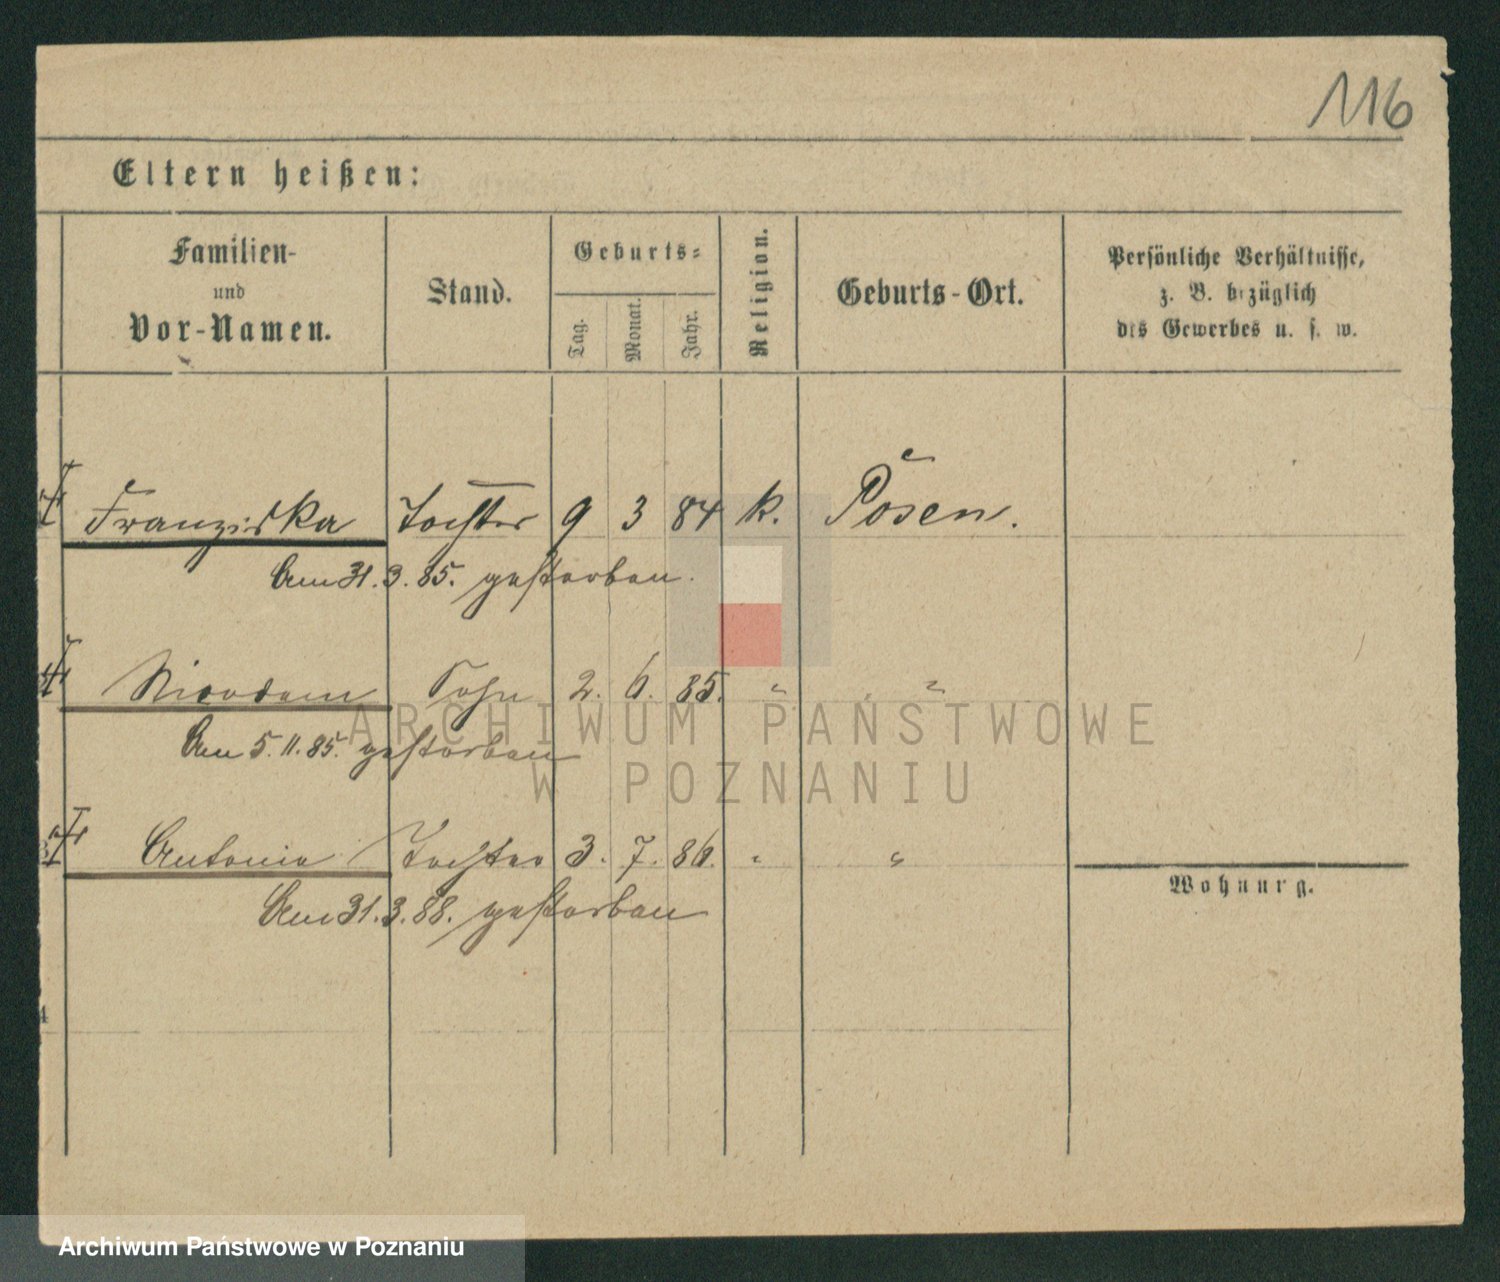 116
Eltern heißen:
Familien-
und
Vor-Namen.
Stand.
Geburts-
Tag.
Monat.
Jahr.
Religion.
Geburts-Ort.
Persönliche Verhältnisse,
z. B. bezüglich
des Gewerbes u. s. w.
Franziska Tochter 9 3 84 k. Posen.
Am 31.3.85. gestorben.
Nicodem Sohn 2. 6. 85. " "
Am 5.11.85. gestorben
Antonie Tochter 3. 7. 86. " "
Wohnung.
Am 31.3.88. gestorben
4
ARCHIWUM PAŃSTWOWE
W POZNANIU
Archiwum Państwowe w Poznaniu